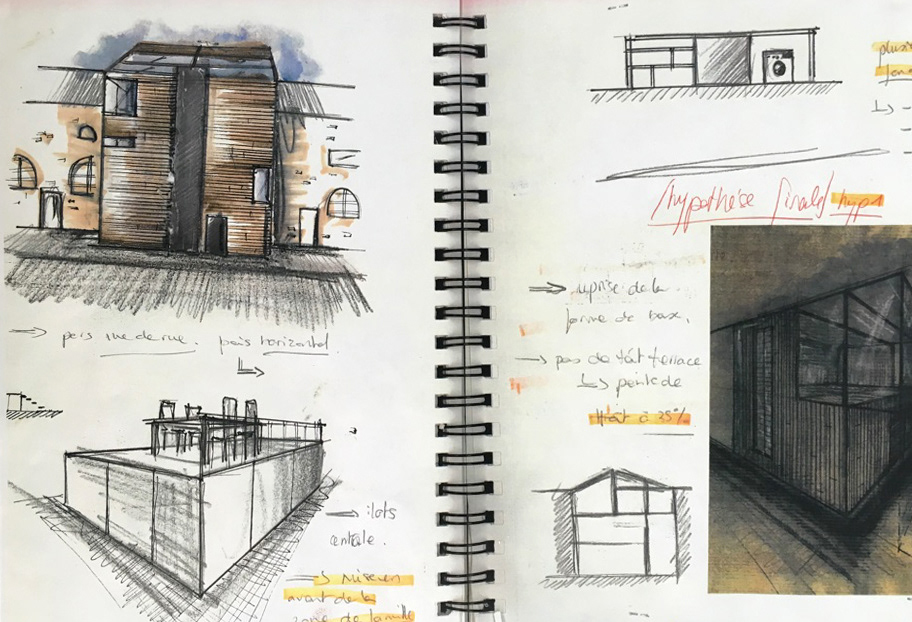 → vue de rue. horizontal
→ ilots
centrale.
→ Mise en
avant de la
zone de famille
hypothèse finale/ hyp1
→ reprise de la
forme de base.
→ pas de toit terrasse
↳ pente de
toit à 35%